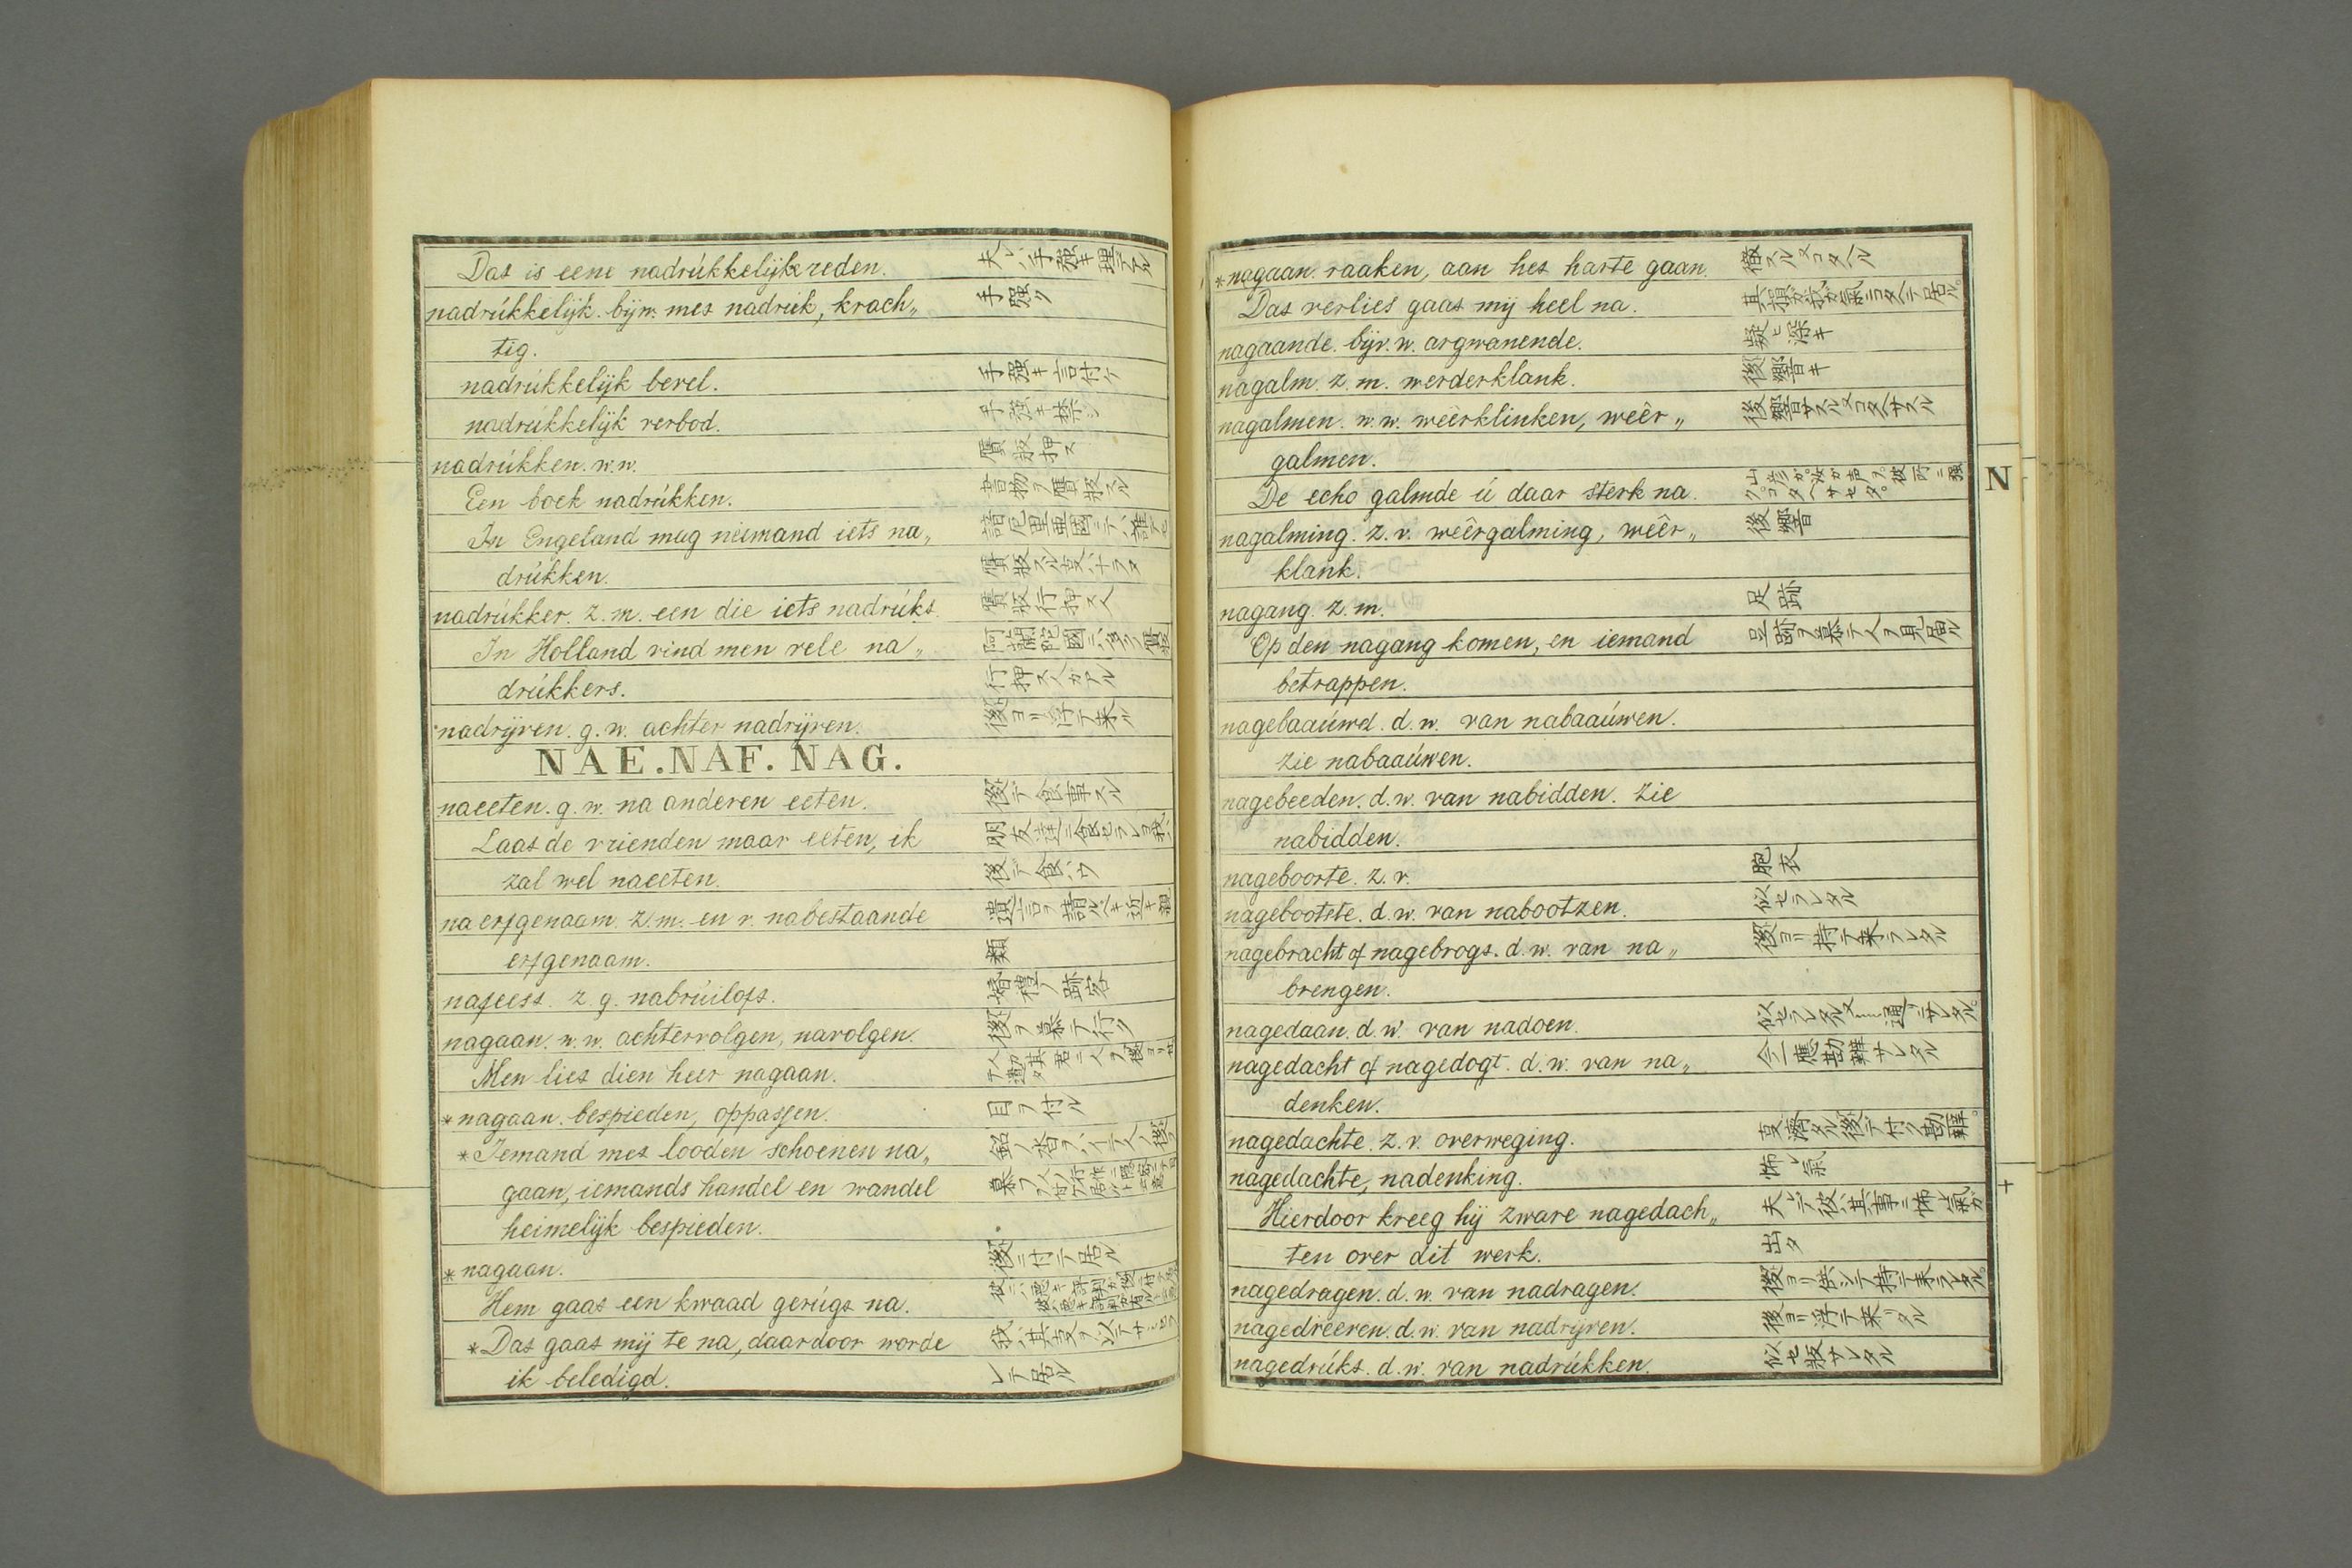 Das is eene nadrúkkelijke reden. 夫レハ手強キ理デアル
nadrúkkelijk. bijw. mes nadruk, krach„ 手強ク
tig.
nadrúkkelijk bevel. 手強キ言付ケ
nadrúkkelijk verbod. 手強キ禁シ
nadrúkken. w.w. 贋板押ス
Een boek nadrúkken. 書物ヲ贋板スル
In Engeland mag niemand iets na„ 諳厄里亜國ニテハ誰デモ
drúkken. 贋板スル叓ハナラヌ
nadrúkker. z.m. een die iets nadrúks. 贋板行押ス人
In Holland vind men vele na„ 阿蘭陀國ニハ多ク贋板
drúkkers. 行押ス人カアル
nadrijven. g.w. achter nadrijven. 後ヨリ浮テ来ル
NAE. NAF. NAG.
naeeten. g.w. na anderen eeten. 後デ食事スル
Laas de vrienden maar eeten, ik 朋友達ニ食セラレヨ我ハ
zal wel naeeten. 後デ食ハウ
na erfgenaam. z.m. en v. nabestaande 遺言ヲ請ルベキ近キ親
erfgenaam. 類
nafeess. z.g. nabrúilofs. 婚禮ノ跡客
nagaan. w.w. achtervolgen, navolgen. 後ヲ慕テ行ク
Men lies dien heer nagaan.
*nagaan. bespieden, oppassen. 目ヲ付ル
*Iemand mes looden schoenen na„
gaan, iemands handel en wandel
heimelijk bespieden.
*nagaan. 後ニ付テ居ル
Hem gaas een kwaad gerúgs na.
*Das gaas mij te na, daardoor worde 我ハ其叓ヲ以テサミセラ
ik beledigd. レテ居ル
*nagaan. raaken, aan hes harte gaan. 徹スル又コタヘル
Das verlies gaas mij heel na. 其損ガ我ガ氣ニコタヘテ居ル。
nagaande. bijv.w. argwanende. 疑ヒ深キ
nagalm. z.m. werderklank. 後響キ
nagalmen. w.w. weêrklinken, weêr„ 後響サスル又コタヘサスル
galmen.
De echo galmde ú daar sterk na. 山彦ガ。汝ガ声ヲ。彼所ニ強ク。コタヘサセタ。
nagalming. z.v. weêrgalming, weêr„ 後響
klank.
nagang. z.m. 足跡
Op den nagang komen, en iemand 足跡ヲ慕テ人ヲ見届ル
betrappen.
nagebaaúwd. d.w. van nabaaúwen.
zie nabaaúwen.
nagebeeden. d.w. van nabidden. zie
nabidden.
nageboorte. z.v. 胞衣
nagebootste. d.w. van nabootzen. 似セラレタル
nagebracht of nagebrogs. d.w. van na„ 後ヨリ持テ来ラレタル
brengen.
nagedaan. d.w. van nadoen.
nagedacht of nagedogt. d.w. van na„ 今一應勘辨サレタル
denken.
nagedachte. z.v. overweging. 叓濟タル後デ付ク勘辨。
nagedachte, nadenking. 怖レ氣
Hierdoor kreeg hij zware nagedach„ 夫レデ彼ハ其事ニ怖レ氣ガ
ten over dit werk. 出タ
nagedragen. d.w. van nadragen. 後ヨリ供シテ持テ来ラレタル。
nagedreeven. d.w. van nadrijven. 後ヨリ浮テ来リタル
nagedrúks. d.w. van nadrúkken. 似セ板サレタル
N
+